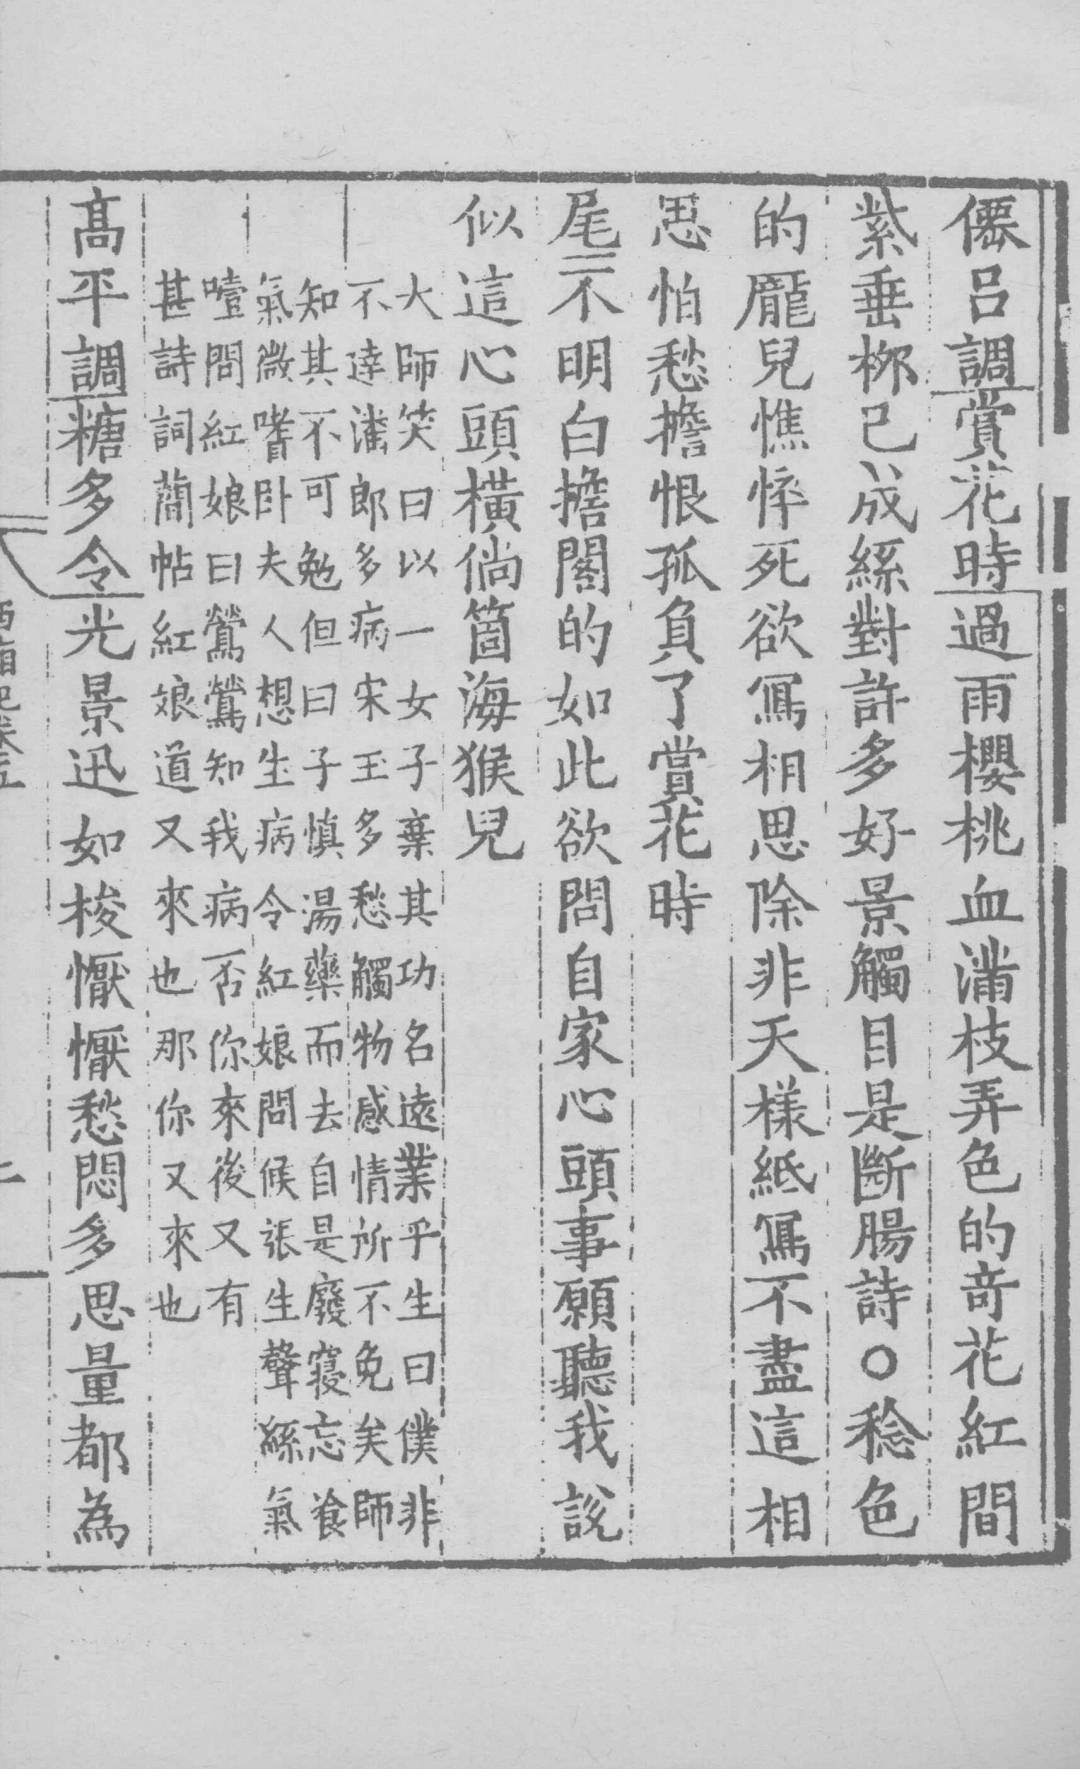 僊呂調賞花時過雨櫻桃血滿枝弄色的竒花紅間
紫垂桞已成絲對許多好景觸目是斷腸詩○稔色
的龎兒憔悴死欲寫相思除非天樣紙寫不盡這相
思怕愁擔恨孤負了賞花時
尾二不明白擔閣的如此欲問自家心頭事願聽我說
似這心頭橫倘箇海猴兒
大師笑曰以一女子棄其功名遠業乎生曰僕非
不逹潘郎多病宋玉多愁觸物感情所不免矣師
知其不可勉但曰子慎湯藥而去自是廢寢忘飡
氣微嗜卧夫人想生病令紅娘問候張生聲絲氣
噎問紅娘曰鶯鶯知我病否你來後又有
甚詩詞蕳帖紅娘道又來也那你又來也
髙平調糖多令光景迅如梭懨懨愁悶多思量都為
西廂記卷五